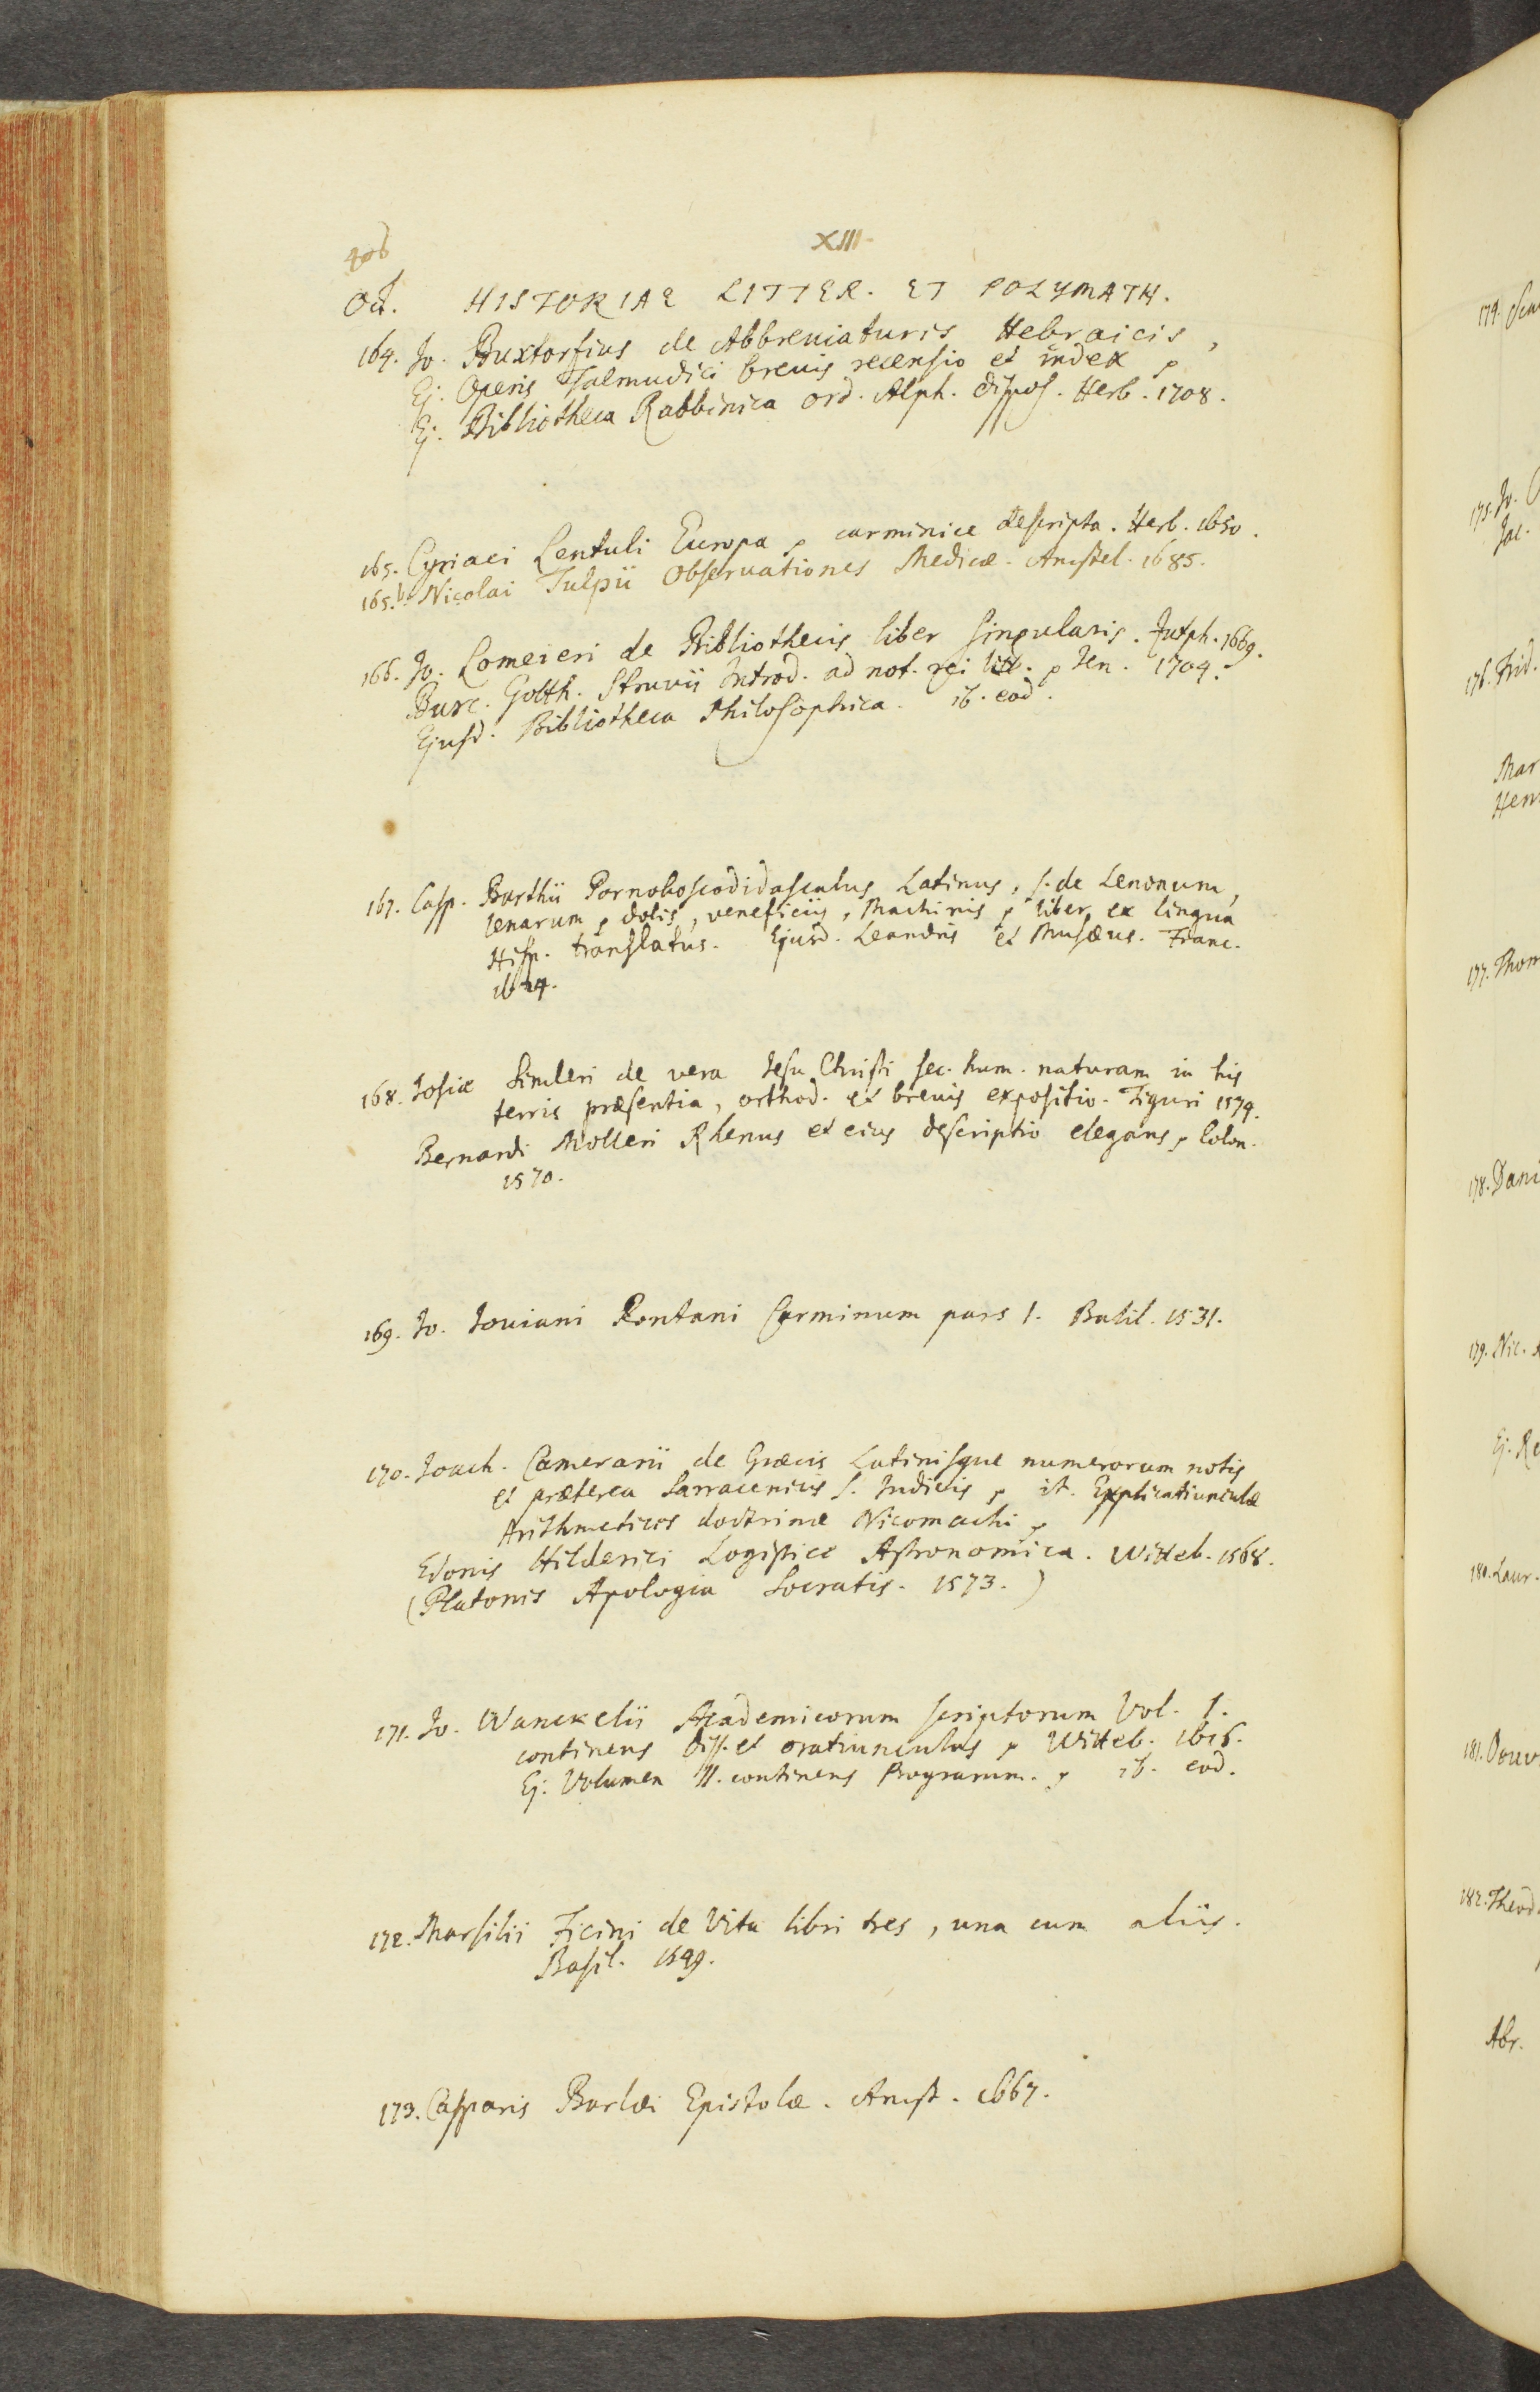 406
XIII
Oct. HISTORIAE LITTER. ET POLYMATH.
164. Jo. Buxtorfius de Abbreviaturis Hebraicis,
Ej. Operis Talmudici brevis recensio et index
Ej. Bibliotheca Rabbinica ord. Alph. dispos. Herb. 1708.
165. Cyriaci Lentuli Europa carminice descripta. Herb. 1650.
165.b Nicolai Tulpii Observationes Medicæ. Amstel. 1685.
166. Jo. Lomeieri de Bibliothecis liber singularis. Zutph. 1669.
Burc. Gotth. Struvii Introd. ad not. rei litt. Jen. 1704.
Ejusd. Bibliotheca Philosophica. ib. eod.
167. Casp. Barthii Pornoboscodidascalus Latinus, s. de Lenonum,
lenarum dolis, veneficiis, machinis liber ex lingua
Hisp. translatus. Ejusd. Leandris et Musæus. Franc.
1624.
168. Josiæ Simleri de vera Jesu Christi sec. hum. naturam in his
terris præsentia, orthod. et brevis expositio. Tiguri 1574.
Bernardi Molleri Rhenus et eius descriptio elegans, Colon.
1570.
169. Jo. Joviani Pontani Carminum pars 1. Basil. 1531.
170. Joach. Camerarii de Græcis Latinisque numerorum notis
et præterea Sarracenicis s. Indicis it. Explicatiunculæ
Arithmetices doctrinæ Nicomachi
Edonis Hilderici Logistice Astronomica. Witteb. 1568.
(Platonis Apologia Socratis. 1573.)
171. Jo. Wanckelii Academicorum scriptorum Vol. I.
continens diss. et oratiunculas Witteb. 1616.
Ej. Volumen II. continens Programm. ib. eod.
172. Marsilii Ficini de Vita libri tres, una cum aliis.
Basil. 1549.
173. Casparis Barlæi Epistolæ. Amst. 1667.